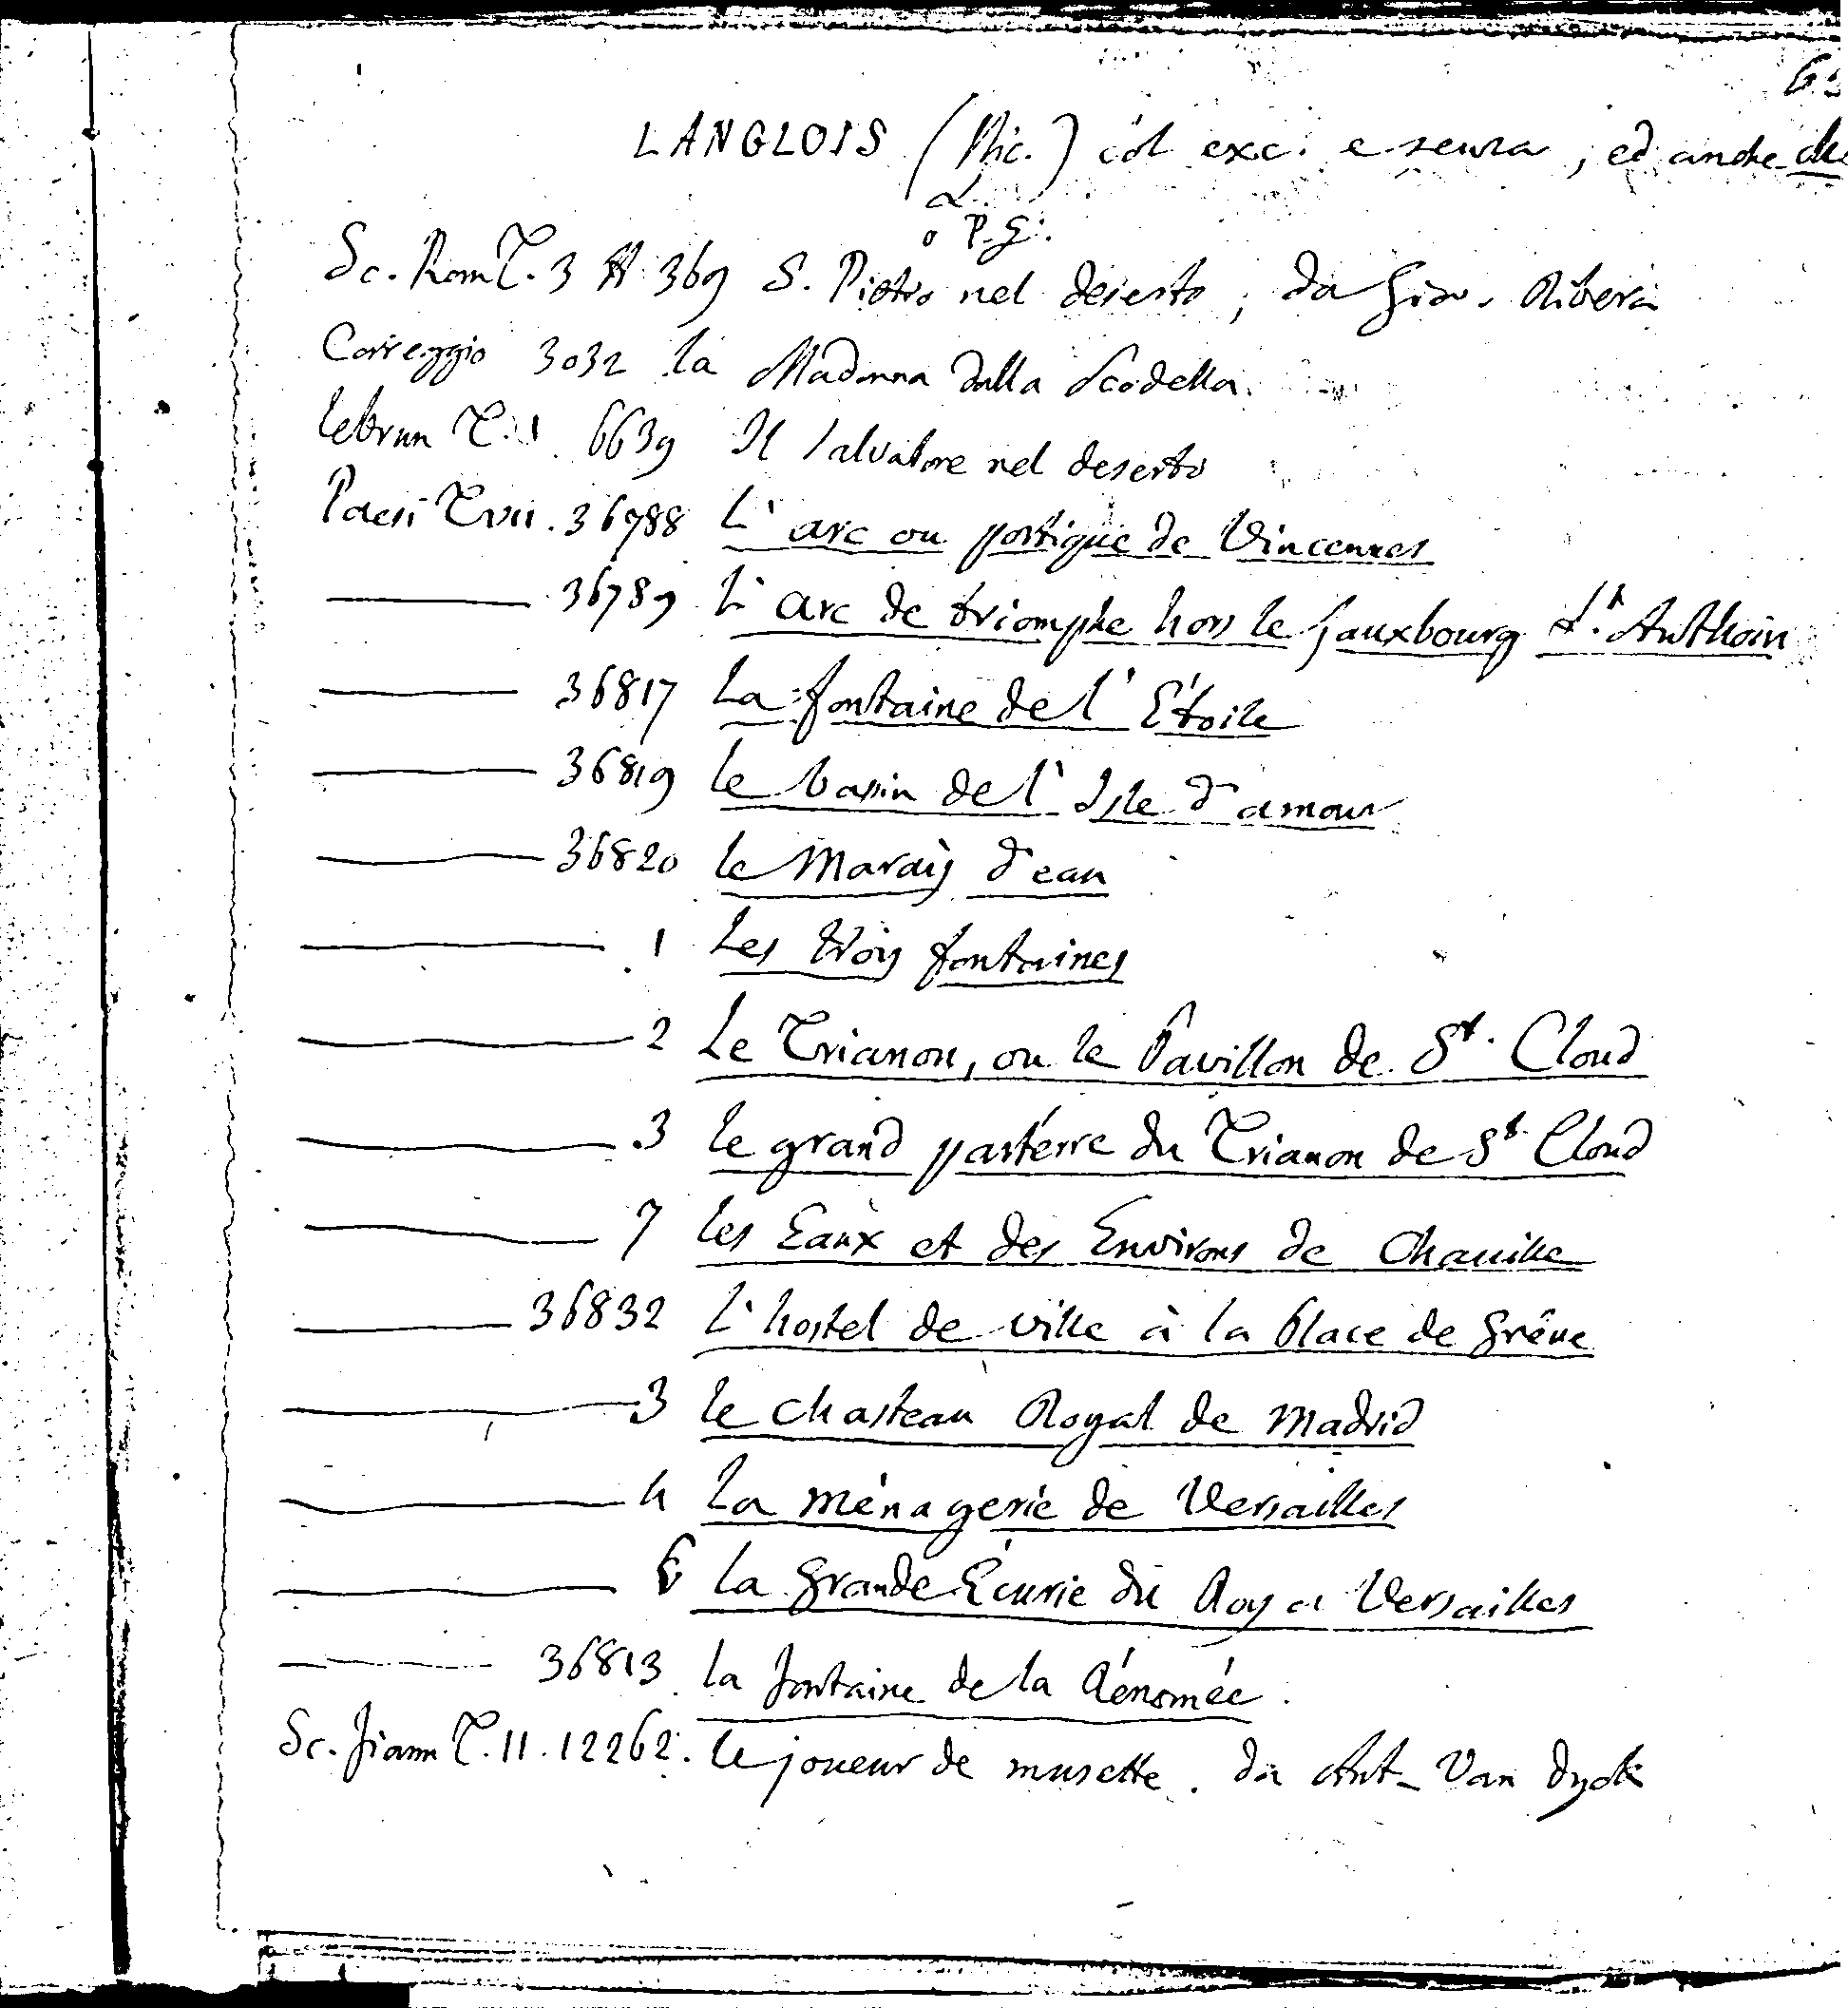 LANGLOIS (Nic.) col exc. e senza, ed anche
o P. G.
Sc. Rom T. 3 # 369 S. Pietro nel deserto, da Giov. Ribera
Correggio 3032 la Madonna dalla Scodella.
lebrun T. 1. 6639 Il Salvatore nel deserto
Paesi T. VII. 36788 L' arc ou portique de Vincennes
36789 L' arc de triomphe hors le fauxbourg St. Anthoin
36817 La fontaine de l' Étoile
36819 le bassin de l' Isle d'amour
36820 le Marais d'eau
1 Les trois fontaines
2 Le Trianon, ou le Pavillon de St. Cloud
3 le grand parterre du Trianon de St Cloud
7 les Eaux et des Environs de Chaville
36832 L'hostel de ville à la place de Grêve
3 le chasteau Royal de Madrid
4 La ménagerie de Versailles
6 La grande Écurie du Roy a Versailles
36813 la fontaine de la Rénomée.
Sc. fiamm T. II. 12262. le joueur de musette. da Ant. Van Dyck